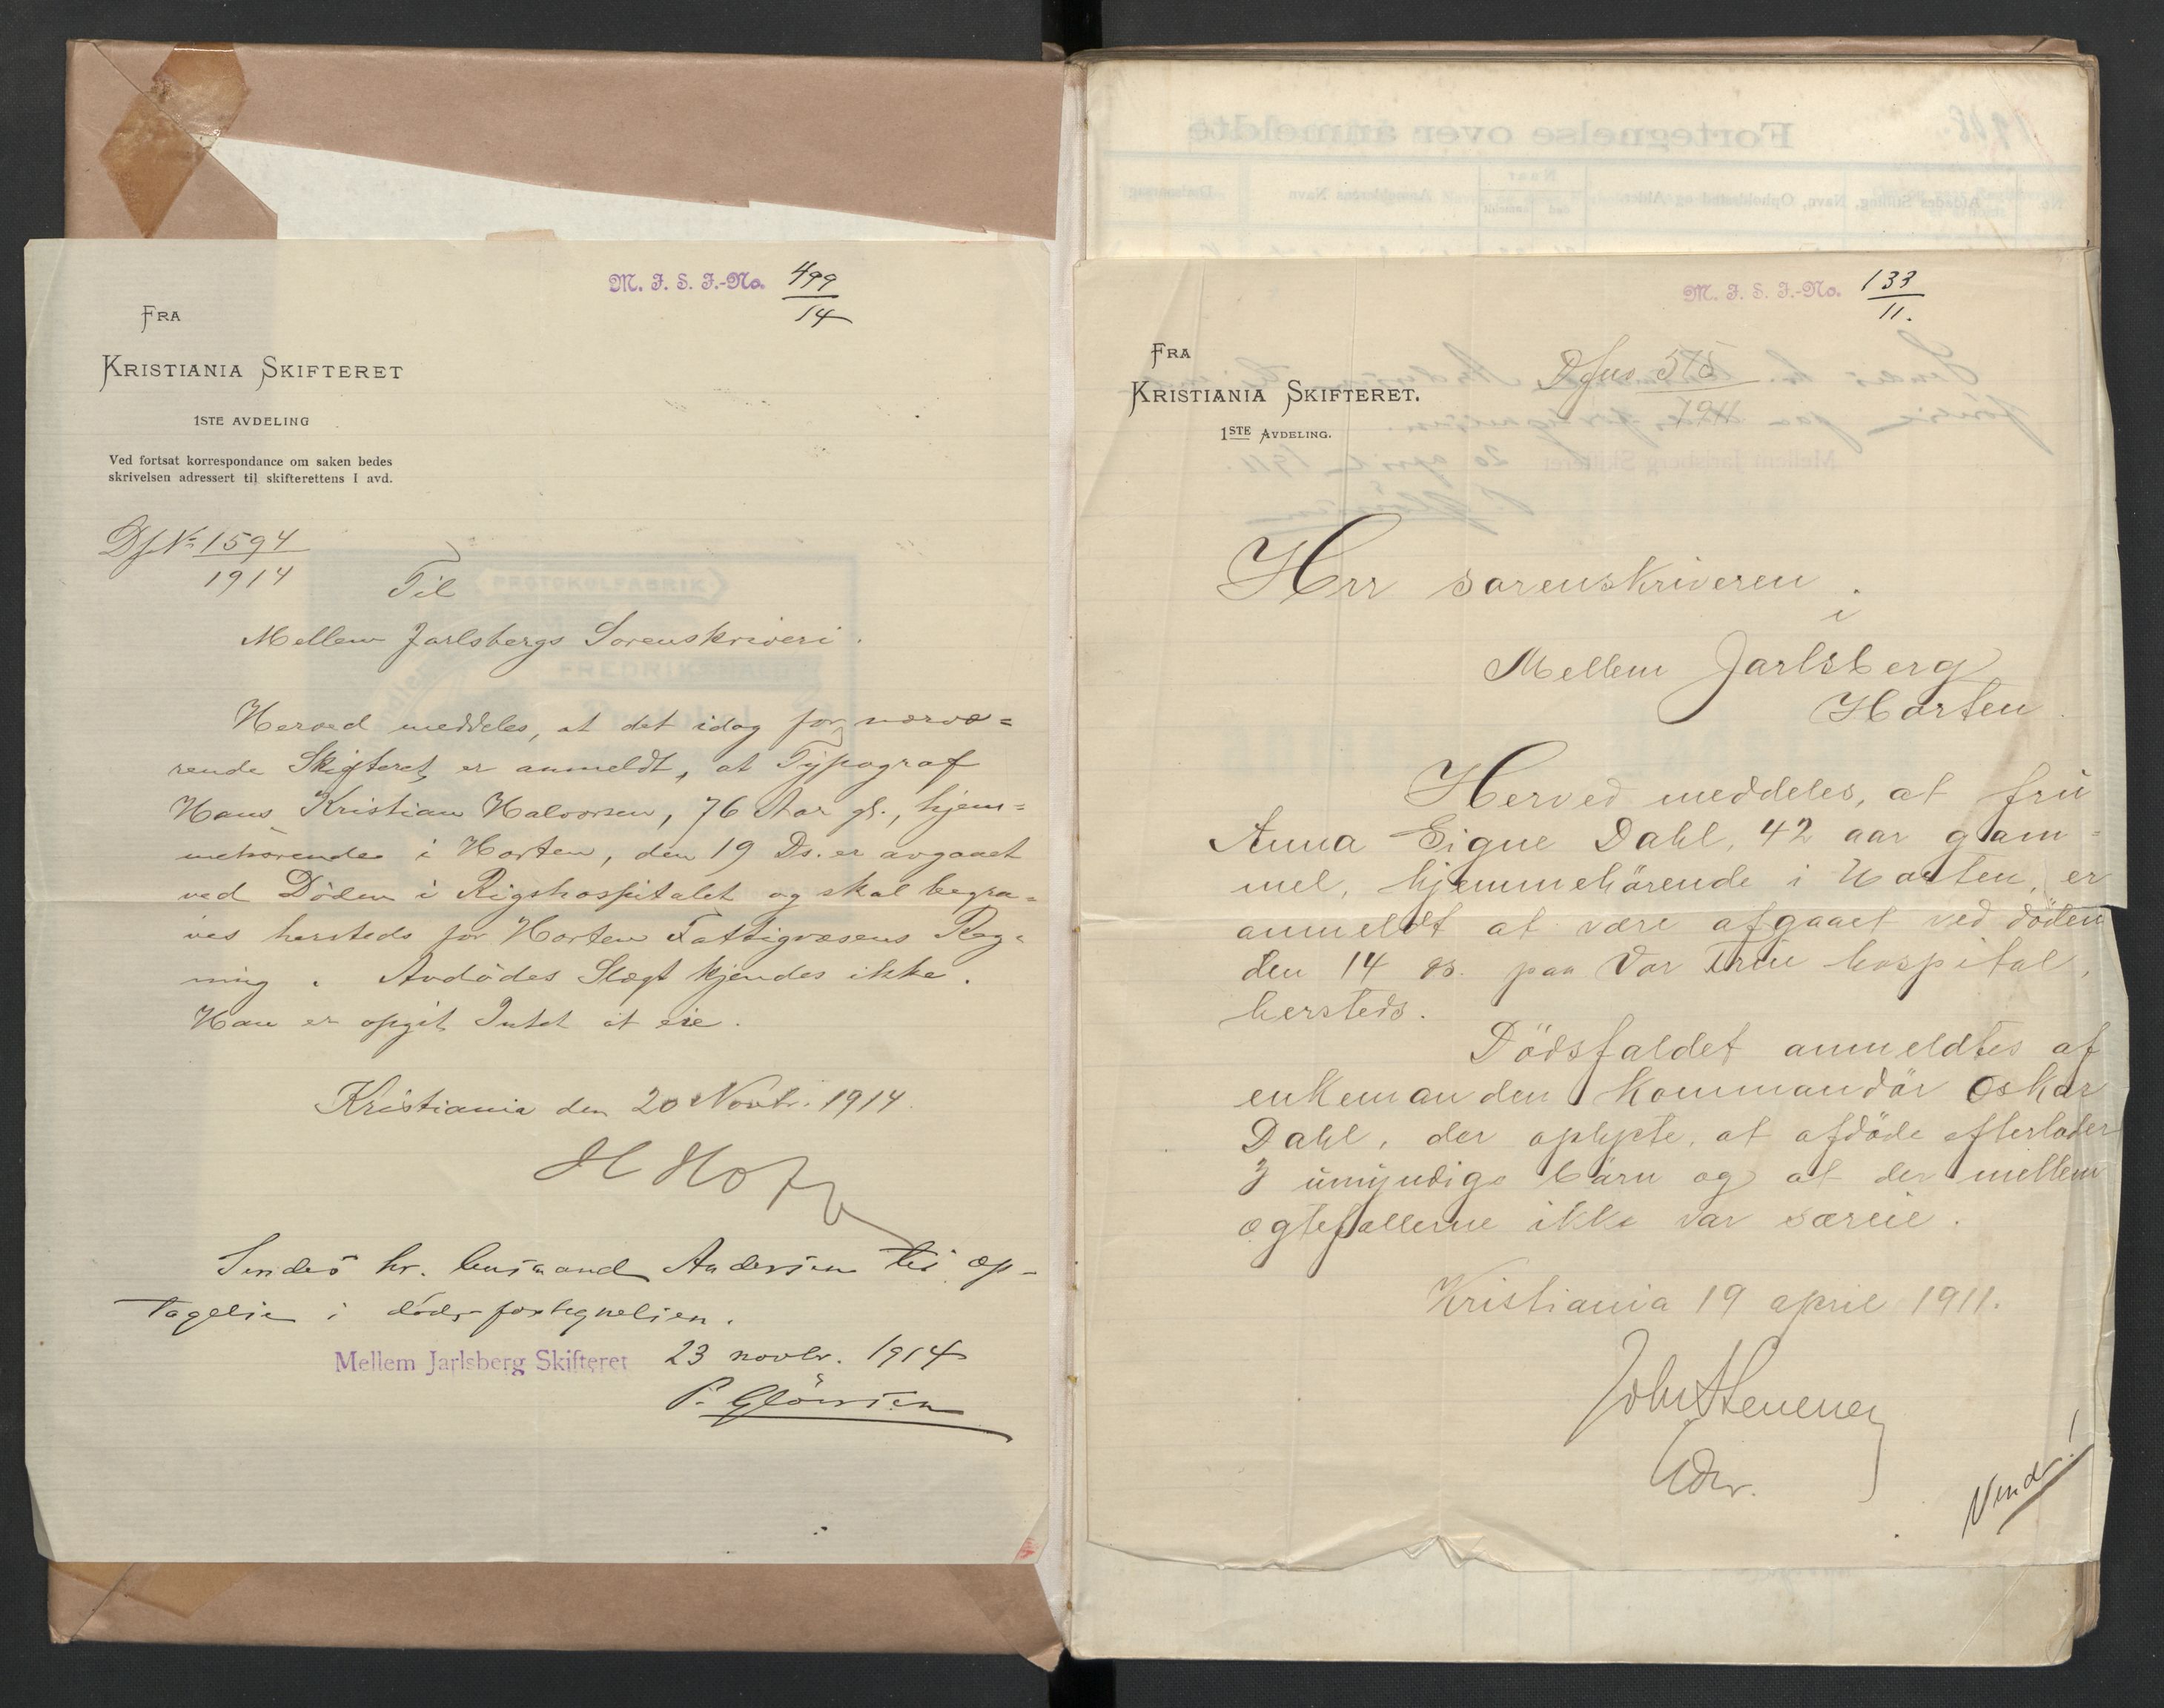 M. J. S. J.-No. 499
14
FRA
KRISTIANIA SKIFTERET
1STE AVDELING
Ved fortsat korrespondance om saken bedes
skrivelsen adressert til skifterettens I avd.
Df No 1594
1914
Til
Mellem Jarlsbergs Sorenskriveri.
Herved meddeles, at det idag for nærvæ=
rende Skifteret er anmeldt, at Typograf
Hans Kristian Halvorsen, 76 Aar gl., hjem=
mehørende i Horten, den 19 Ds. er avgaaet
ved Døden i Rigshospitalet og skal begra=
ves hersteds for Horten Fattigvæsens Reg=
ning. Avdødes Slegt kjendes ikke.
Han er opgit Intet at eie.
Kristiania den 20 Novbr. 1914.
Sendes hr. lensmand Andersen til op-
tagelse i dødsfortegnelsen.
Mellem Jarlsberg Skifteret 23 novbr. 1914
Fortegnelse over anmeldte
M. J. S. J.-No. 133
11.
FRA
KRISTIANIA SKIFTERET.
1STE AVDELING.
1911
Herr sorenskriveren
i
Mellem Jarlsberg
Horten.
Herved meddeles, at frü
Anna Signe Dahl, 42 aar gam=
mel, hjemmehörende i Horten, er
anmeldt at være afgaaet ved döden
den 14 ds. paa Vor Früe hospital,
hersteds.
Dödsfaldet anmeldtes af
enkemanden kommandör Oskar
Dahl, der oplyste, at afdöde efterlader
3 ümyndige börn og at der mellem
ægtefællerne ikke var særeie.
Kristiania 19 april 1911.
Vend!